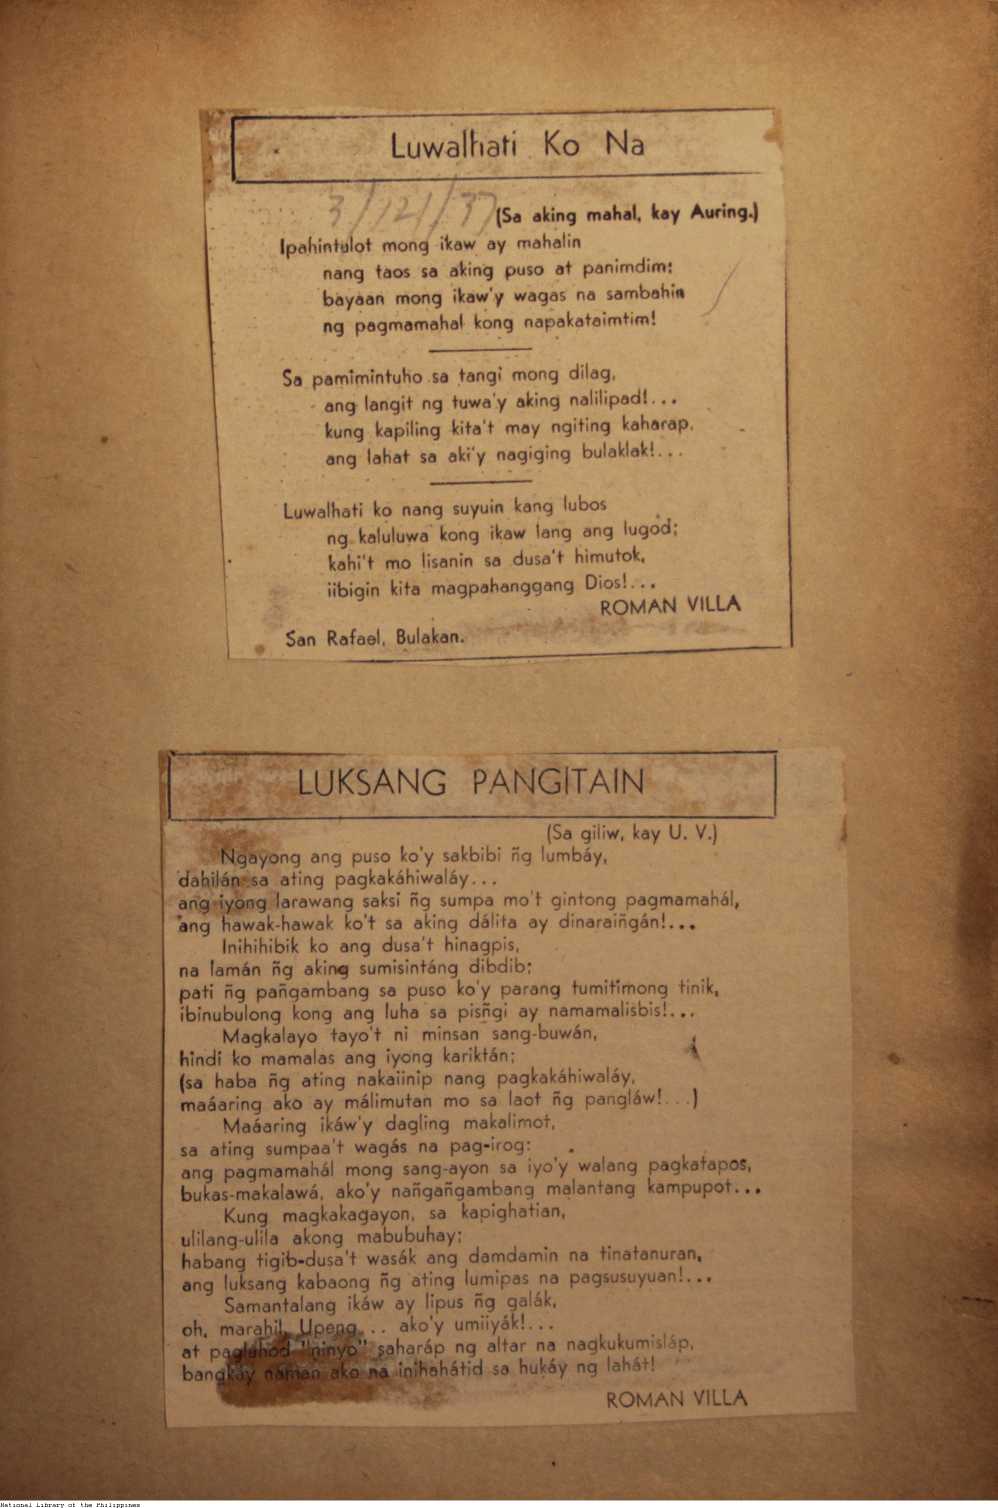 Luwalhati Ko Na
3/121/37
(Sa aking mahal, kay Auring.)
Ipahintulot mong ikaw ay mahalin
nang taos sa aking puso at panimdim;
bayaan mong ikaw'y wagas na sambahin
ng pagmamahal kong napakataimtim!
Sa pamimintuho sa tangi mong dilag,
ang langit ng tuwa'y aking nalilipad!...
kung kapiling kita't may ngiting kaharap,
ang lahat sa aki'y nagiging bulaklak!...
Luwalhati ko nang suyuin kang lubos
ng kaluluwa kong ikaw lang ang lugod;
kahi't mo lisanin sa dusa't himutok,
iibigin kita magpahanggang Dios!...
ROMAN VILLA
San Rafael, Bulakan.
LUKSANG PANGITAIN
(Sa giliw, kay U. V.)
Ngayong ang puso ko'y sakbibi ñg lumbáy,
dahilán sa ating pagkakáhiwaláy...
ang iyong larawang saksi ñg sumpa mo't gintong pagmamahál,
ang hawak-hawak ko't sa aking dálita ay dinaraiñgán!...
Inihihibik ko ang dusa't hinagpis,
na lamán ñg aking sumisintáng dibdib;
pati ñg pañgambang sa puso ko'y parang tumitimong tinik,
ibinubulong kong ang luha sa pisñgi ay namamalisbis!...
Magkalayo tayo't ni minsan sang-buwán,
hindi ko mamalas ang iyong kariktán;
(sa haba ñg ating nakaiinip nang pagkakáhiwaláy,
maáaring ako ay málimutan mo sa laot ñg pangláw!...)
Maáaring ikáw'y dagling makalimot,
sa ating sumpaa't wagás na pag-irog:
ang pagmamahál mong sang-ayon sa iyo'y walang pagkatapos,
bukas-makalawá, ako'y nañgañgambang malantang kampupot...
Kung magkakagayon, sa kapighatian,
ulilang-ulila akong mabubuhay;
habang tigib-dusa't wasák ang damdamin na tinatanuran,
ang luksang kabaong ñg ating lumipas na pagsusuyuan!...
Samantalang ikáw ay lipus ñg galák,
oh, marahil, Upeng... ako'y umiiyák!...
at pagluhod "ninyo" saharáp ng altar na nagkukumisláp,
bangkáy naman ako na inihahátid sa hukáy ng lahát!
ROMAN VILLA
National Library of the Philippines